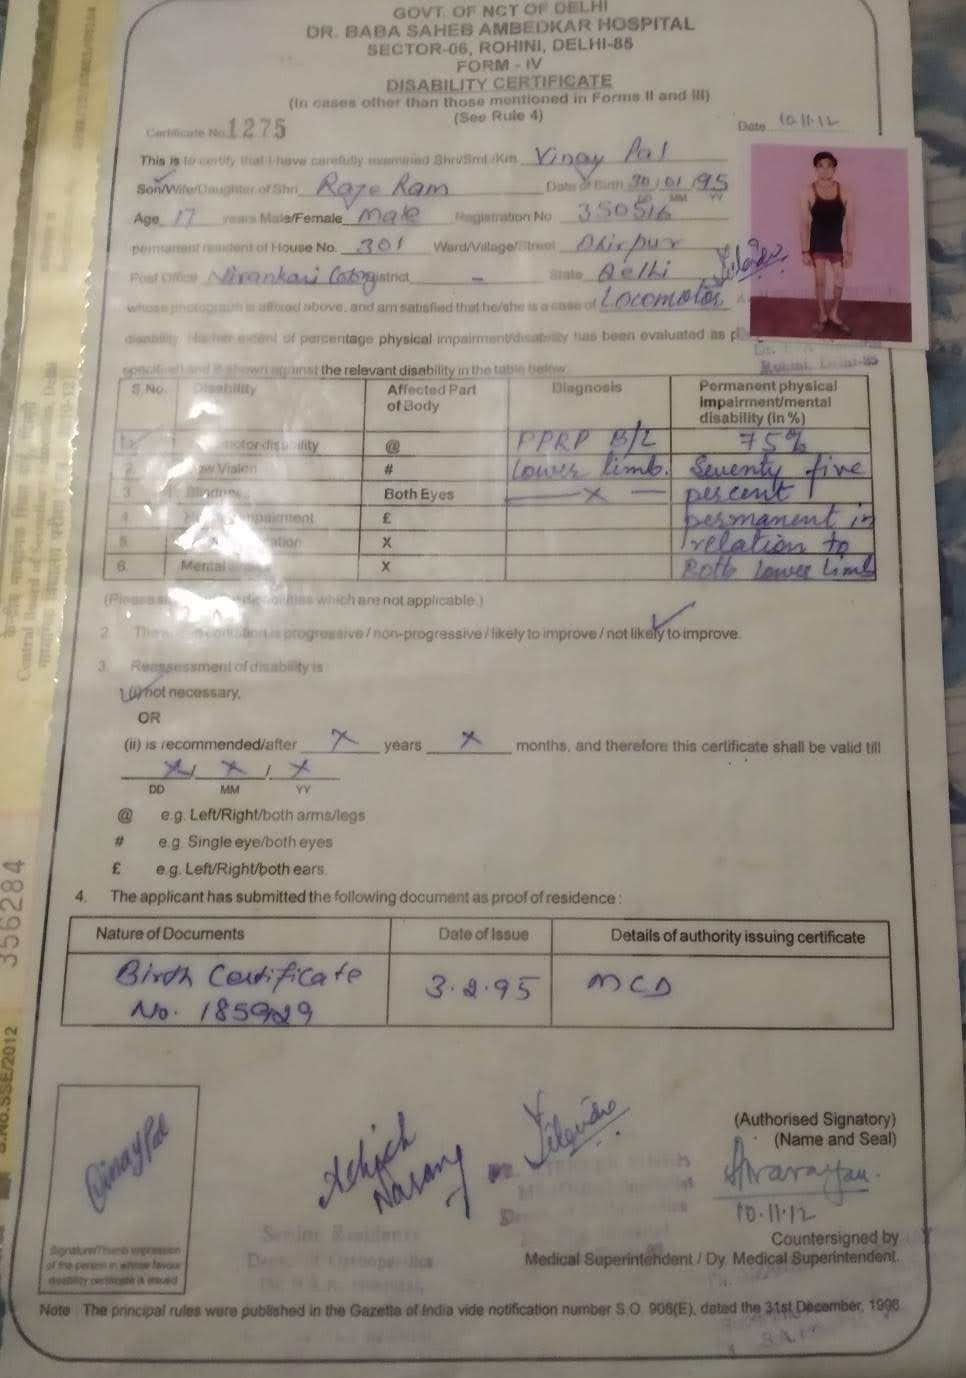 GOVT. OF NCT OF DELHI
DR. BABA SAHEB AMBEDKAR HOSPITAL
SECTOR-06, ROHINI, DELHI-85
FORM - IV
DISABILITY CERTIFICATE
(In cases other than those mentioned in Forms II and III)
(See Rule 4)
Certificate No. 1275 Date 10.11.12
This is to certify that I have carefully examined Shri/Smt./Km. Vinay Pal
Son/Wife/Daughter of Shri Raje Ram Date of Birth 30/01/95
DD MM YY
Age 17 years Male/Female Male Registration No 350516
permanent resident of House No. 301 Ward/Village/Street Dhirpur
Post Office Nirankari Colony District - State Delhi
whose photograph is affixed above, and am satisfied that he/she is a case of Locomotor
disability His/her extent of percentage physical impairment/disability has been evaluated as
specified and is shown against the relevant disability in the table below
S.No. Disability Affected Part of Body Diagnosis Permanent physical impairment/mental disability (in %)
1. disability @ PPRP B/L 75%
2. Vision # Lower limb. Seventy five
3 Both Eyes x percent
4. £ permanent in
5. X relation to
6. Mental X Both lower limb
which are not applicable.)
2. progressive / non-progressive / likely to improve / not likely to improve.
3. Reassessment of disability is
(i) not necessary,
OR
(ii) is recommended/after x years x months, and therefore this certificate shall be valid till
x / x / x
DD MM YY
@ e.g. Left/Right/both arms/legs
# e.g. Single eye/both eyes
£ e.g. Left/Right/both ears.
4. The applicant has submitted the following document as proof of residence :
Nature of Documents Date of Issue Details of authority issuing certificate
Birth Certificate 3.2.95 MCD
No. 185929
356284
S.No.SSE/2012
(Authorised Signatory)
(Name and Seal)
Vinay Pal
10.11.12
Senior Residents
Countersigned by
Medical Superintendent / Dy. Medical Superintendent.
Signature/Thumb impression
of the person in whose favour
disability certificate is issued
Note : The principal rules were published in the Gazette of India vide notification number S.O. 908(E), dated the 31st December, 1996